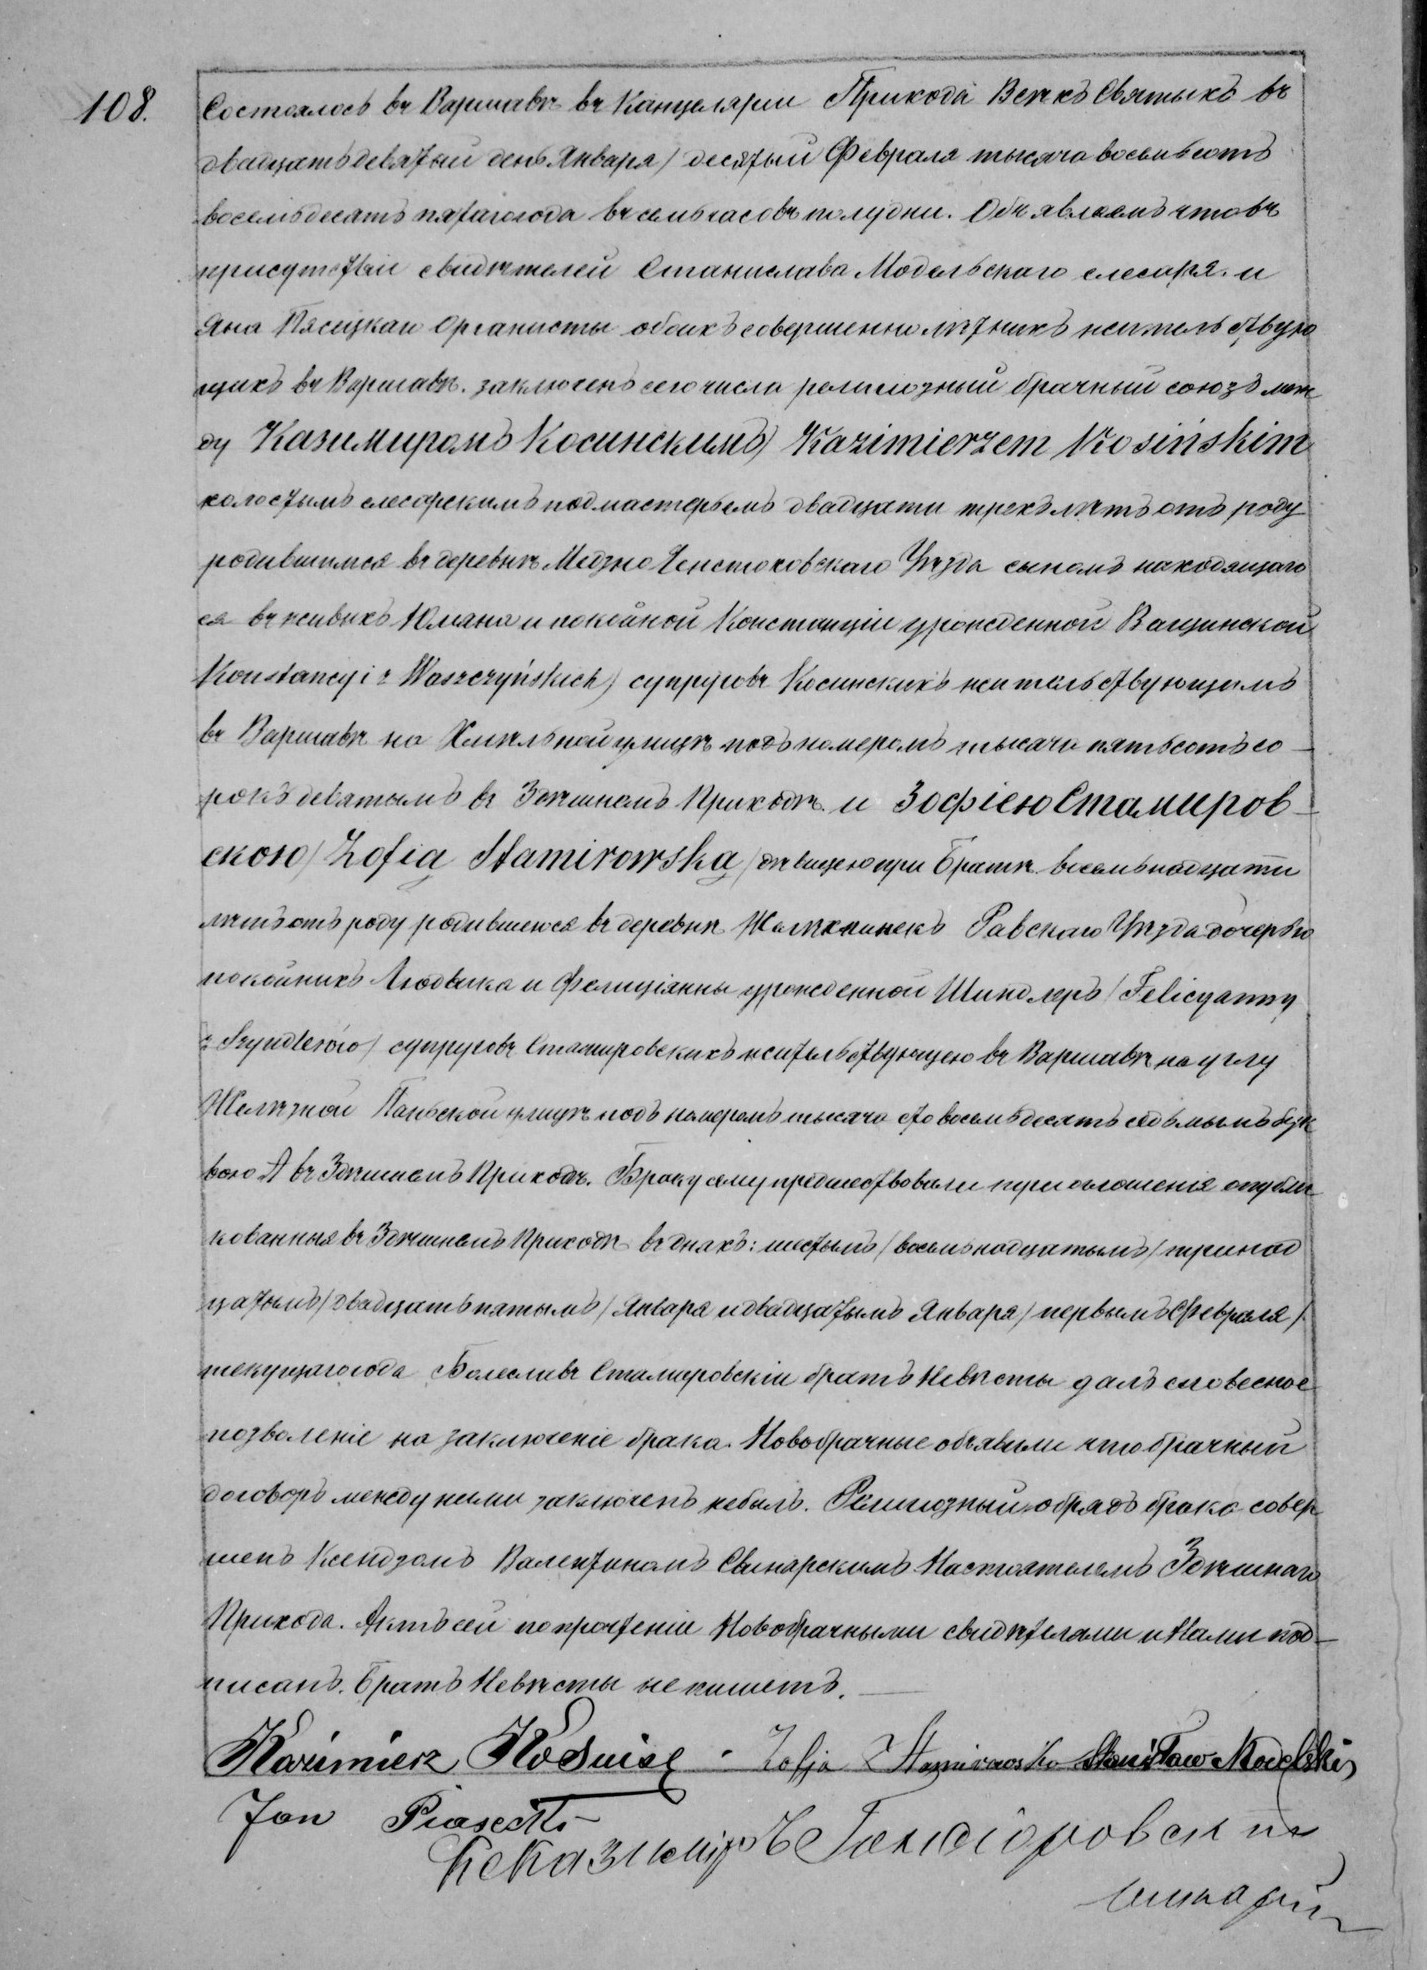 108.
Состоялось въ Варшавѣ въ Канцелярiи Прихода Всѣхъ Святыхъ въ
двадцать девятый день Января / десятый Февраля тысяча восемьсотъ
восемьдесятъ пятаго года въ семь часовъ полудни. Объявляемъ что въ
присутствiи свидѣтелей Станислава Модельскаго слесаря и
Яна Пясецкаго Органисты обоихъ совершеннолѣтнихъ жительствую
щихъ въ Варшавѣ. заключенъ сего числа религiозный брачный союзъ меж
ду Казимиромъ Косинскимъ) Kazimierzem Kosińskim
холостымъ слесарскимъ подмастерьемъ двадцати трехъ лѣтъ отъ роду
родившимся въ деревнѣ Медзно Ченстоховскаго Уѣзда сыномъ находящаго
ся въ живыхъ и покойной Констанцiи урожденной Ващинской
Konstancyi z Waszczyńskich) супруговъ Косинскихъ жительствующимъ
въ Варшавѣ на Хмѣльной улицѣ подъ номеромъ тысяча пятьсотъ со–
рокъ девятымъ въ Здѣшнемъ Приходѣ. и Зофiею Стамиров–
скою / Zofią Stamirowską / дѣвицею при Братѣ восемьнадцати
лѣтъ отъ роду родившеюся въ деревнѣ Равскаго Уѣзда дочерью
покойныхъ Людвика и Фелицiянны урожденной Шиндлеръ / Felicyanny
z Szyndlerów / супруговъ Стамировскихъ жительствующею въ Варшавѣ на углу
Желѣзной Паньской улицѣ подъ номеромъ тысяча сто восемьдесятъ седьмымъ бук
вою А въ Здѣшнемъ Приходѣ. Браку сему предшествовали три оглашенiя опубли
кованныя въ Здѣшнемъ Приходѣ въ дняхъ: шестымъ / восемьнадцатымъ / тринад
цатымъ / двадцать пятымъ / Января и двадцатымъ Января / первымъ Февраля /
текущаго года Болеславъ Стамировскiй братъ Невѣсты далъ словесное
позволенiе на заключенiе брака. Новобрачные объявили что брачный
договоръ между ними заключенъ небылъ. Религiозный обрядъ брака совер
шенъ Ксендзомъ Валентиномъ Свинарскимъ Настоятелемъ Здѣшнаго
Прихода. Актъ сей по прочтенiи Новобрачными свидѣтелями и Нами под–
писанъ. Братъ Невѣсты не пишетъ.
Kazimierz Kosinski Zofja Stamirowska Stanisław Modelski
Jan Piasecki
Кс Казимiръ